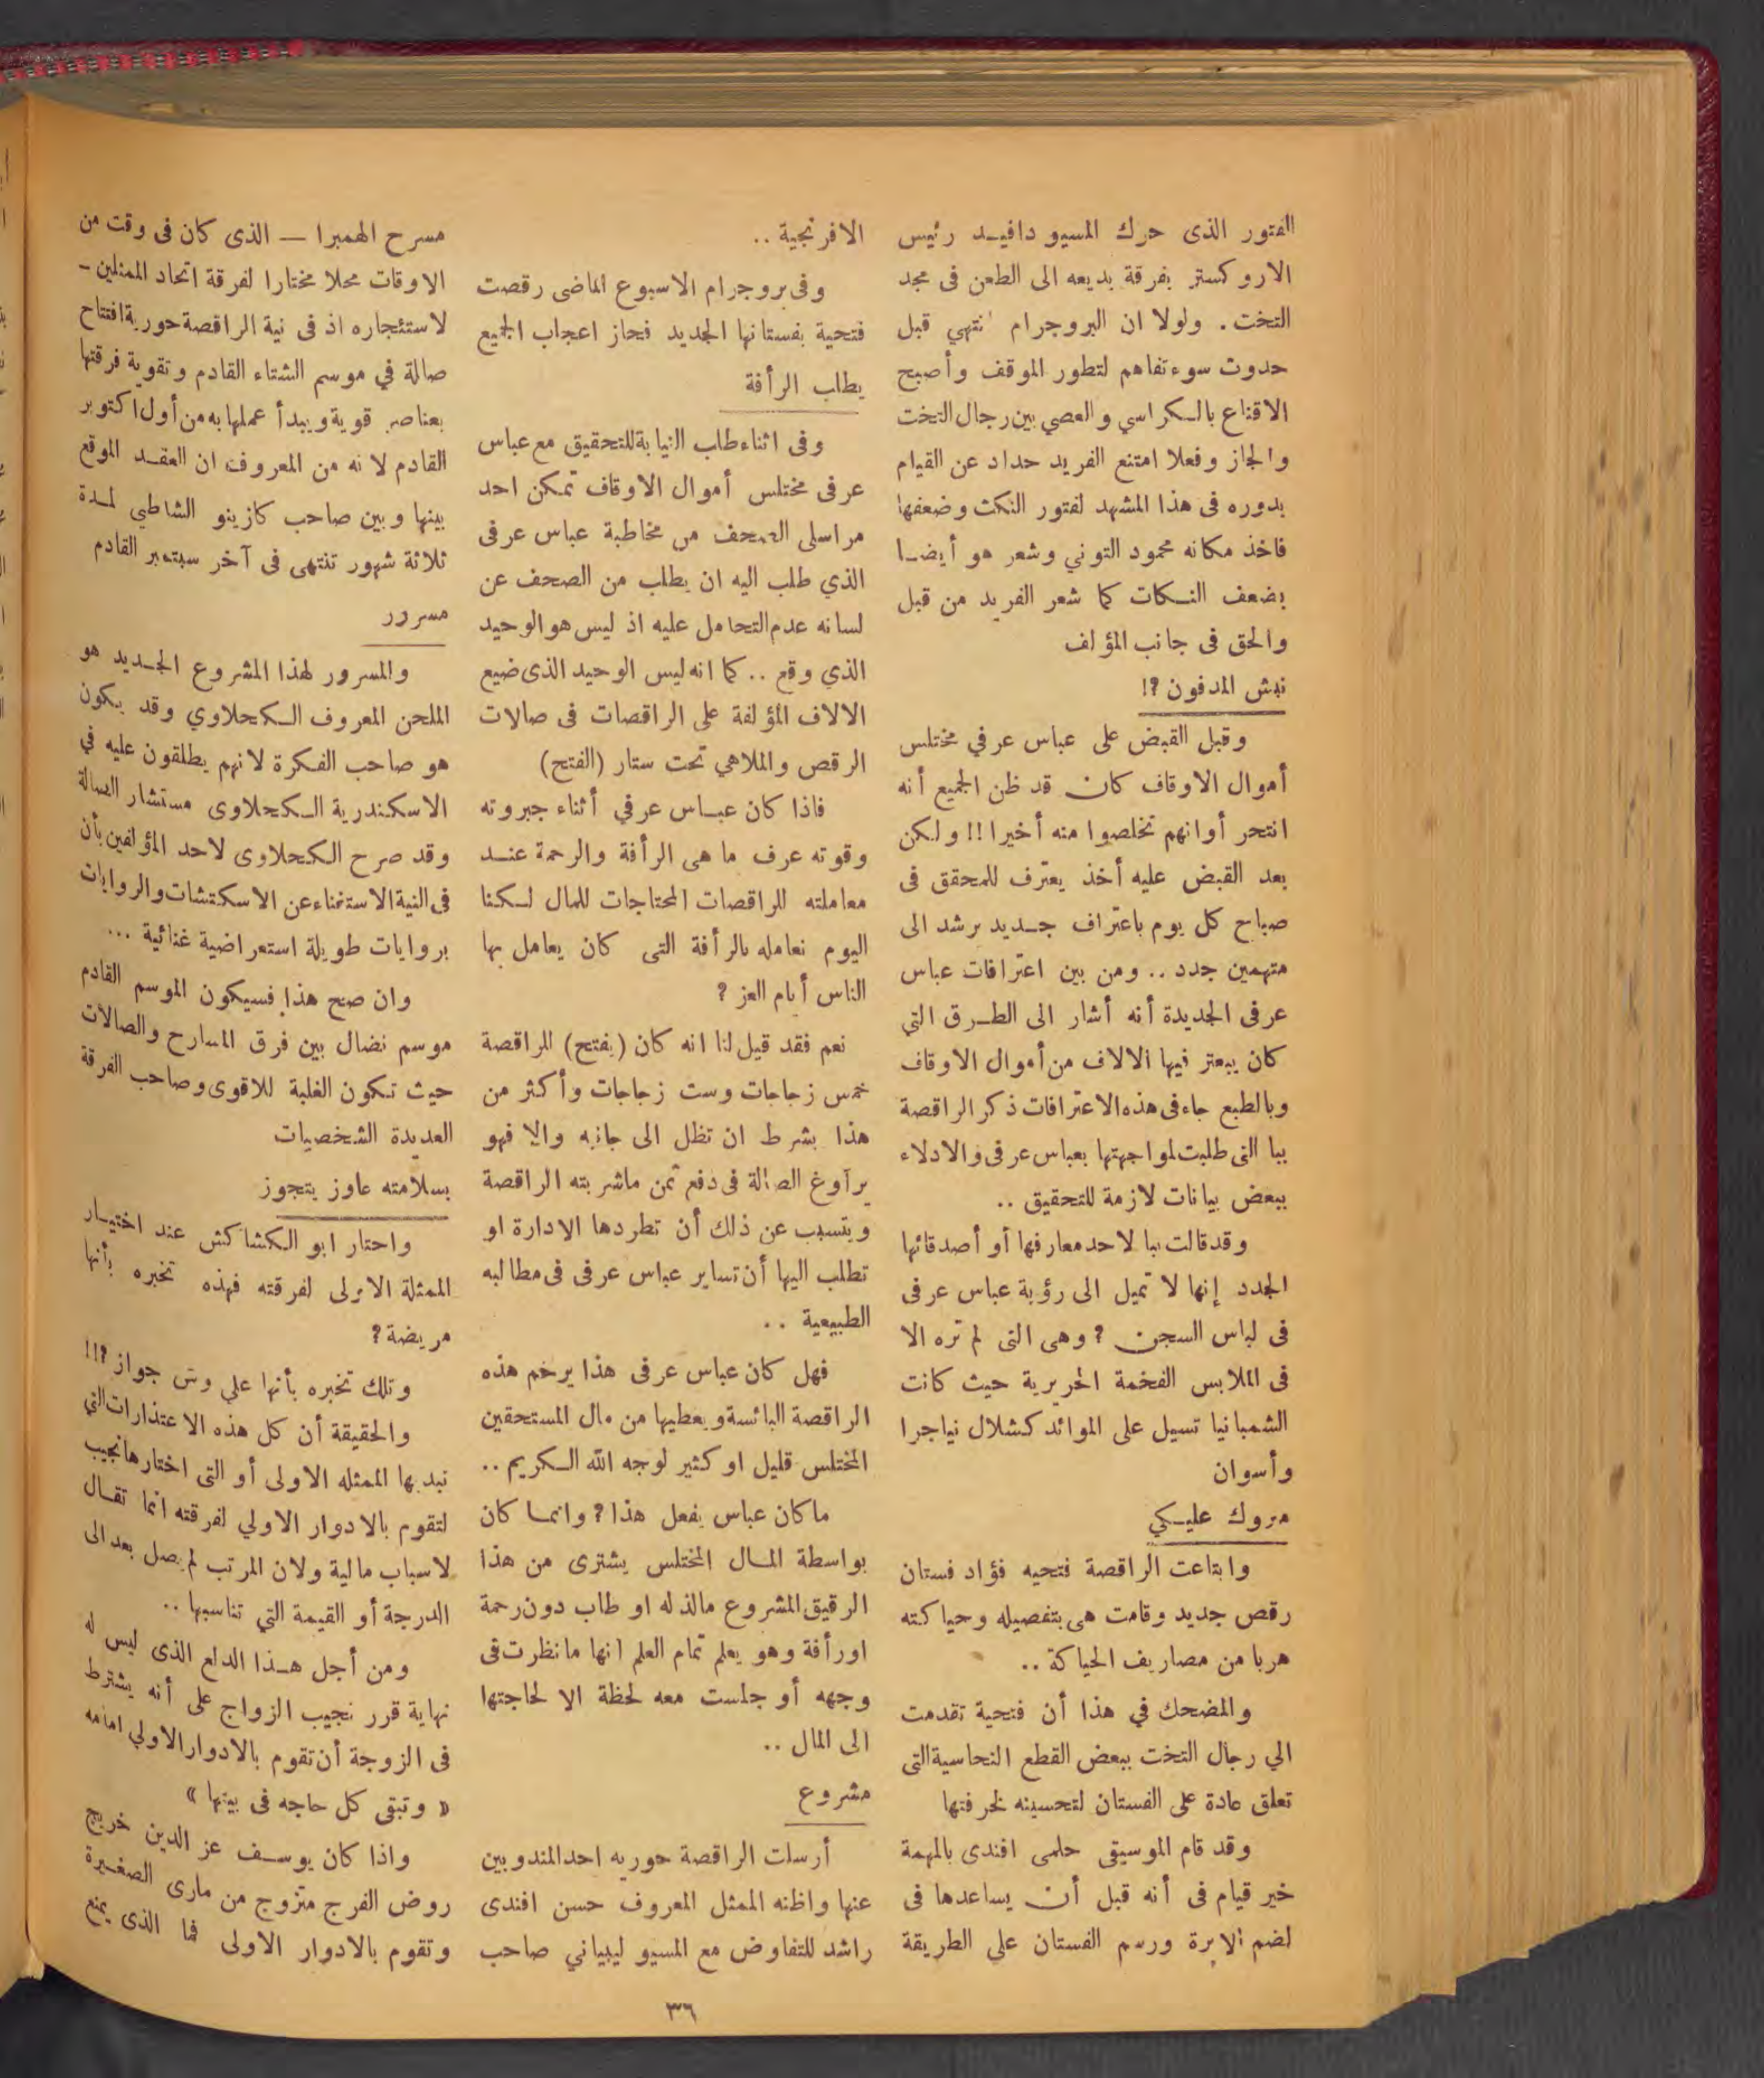 الفتور الذى حرك المسيو دافيد رئيس
الاروكستر بفرقة بديعه الى الطعن فى مجد
التخت . ولولا ان البروجرام انتهي قبل
حدوث سوء تفاهم لتطور الموقف وأصبح
الاقناع بالكراسي والعصي بين رجال التخت
والجاز وفعلا امتنع الفريد حداد عن القيام
بدوره فى هذا المشهد لفتور النكث وضعفها
فاخذ مكانه محمود التوني وشعر هو أيضا
بضعف النكات كما شعر الفريد من قبل
والحق فى جانب المؤلف
نبش المدفون ؟!
وقبل القبض على عباس عرفي مختلس
أموال الاوقاف كان قد ظن الجميع أنه
انتحر أوانهم تخلصوا منه أخيرا !! ولكن
بعد القبض عليه أخذ يعترف للمحقق فى
صباح كل يوم باعتراف جديد يرشد الى
متهمين جدد .. ومن بين اعترافات عباس
عرفى الجديدة أنه أشار الى الطرق التي
كان يبعتر فيها الالاف من أموال الاوقاف
وبالطبع جاء فى هذه الاعترافات ذكر الراقصة
ببا التى طلبت لمواجهتها بعباس عرفى والادلاء
ببعض بيانات لازمة للتحقيق ..
وقد قالت ببا لاحد معارفها أو أصدقائها
الجدد إنها لا تميل الى رؤية عباس عرفى
فى لباس السجن ؟ وهى التى لم تره الا
فى الملابس الفخمة الحريرية حيث كانت
الشمبانيا تسيل على الموائد كشلال نياجرا
وأسوان
مروك عليكي
وابتاعت الراقصة فتحيه فؤاد فستان
رقص جديد وقامت هى بتفصيله وحياكته
هربا من مصاريف الحياكة ..
والمضحك في هذا أن فتحية تقدمت
الي رجال التخت ببعض القطع النحاسية التى
تعلق عادة على الفستان لتحسينه لخرفتها
وقد قام الموسيقى حلمى افندى بالمهمة
خير قيام فى أنه قبل أن يساعدها فى
لضم الابرة ورسم الفستان على الطريقة
الافرنجية ..
وفى بروجرام الاسبوع الماضى رقصت
فتحية بفستانها الجديد فحاز اعجاب الجميع
يطلب الرأفة
وفى اثناء طلب النيابة للتحقيق مع عباس
عرفى مختلس أموال الاوقاف تمكن احد
مراسلى الصحف من مخاطبة عباس عرفى
الذي طلب اليه ان يطلب من الصحف عن
لسانه عدم التحامل عليه اذ ليس هو الوحيد
الذي وقع .. كما انه ليس الوحيد الذى ضيع
الالاف المؤلفة على الراقصات فى صالات
الرقص والملاهي تحت ستار (الفتح)
فاذا كان عباس عرفي أثناء جبروته
وقوته عرف ما هى الرأفة والرحمة عند
معاملته للراقصات المحتاجات للمال لكنا
اليوم نعامله بالرأفة التى كان يعامل بها
الناس أيام العز ؟
نعم فقد قيل لنا انه كان (يفتح) للراقصة
خمس زجاجات وست زجاجات وأكثر من
هذا بشرط ان تظل الى جانبه والا فهو
يراوغ الصالة فى دفع ثمن ماشربته الراقصة
ويتسبب عن ذلك أن تطردها الادارة او
تطلب اليها أن تساير عباس عرفى فى مطالبه
الطبيعية ..
فهل كان عباس عرفى هذا يرحم هذه
الراقصة البائسة ويعطيها من مال المستحقين
المختلس قليل او كثير لوجه الله الكريم ..
ماكان عباس يفعل هذا ؟ وانما كان
بواسطة المال المختلس يشترى من هذا
الرقيق المشروع مالذ له او طاب دون رحمة
اورأفة وهو يعلم تمام العلم انها ما نظرت فى
وجهه أو جلست معه لحظة الا لحاجتها
الى المال ..
مشروع
أرسلت الراقصة حوريه احد المندوبين
عنها واظنه الممثل المعروف حسن افندى
راشد للتفاوض مع المسيو ليبياني صاحب
مسرح الهمبرا — الذى كان فى وقت من
الاوقات محلا مختارا لفرقة اتحاد الممثلين –
لاستئجاره اذ فى نية الراقصة حورية افتتاح
صالة في موسم الشتاء القادم وتقوية فرقتها
بعناصر قوية ويبدأ عملها به من أول اكتوبر
القادم لانه من المعروف ان العقد الموقع
بينها وبين صاحب كازينو الشاطبي لمدة
ثلاثة شهور تنتهى فى آخر سبتمبر القادم
مسرور
والمسرور لهذا المشروع الجديد هو
الملحن المعروف الكحلاوي وقد يكون
هو صاحب الفكرة لانهم يطلقون عليه في
الاسكندرية الكحلاوى مستشار الصالة
وقد صرح الكحلاوى لاحد المؤلفين بأن
فى النية الاستغناء عن الاسكتشات والروايات
بروايات طويلة استعراضية غنائية ...
وان صح هذا فسيكون الموسم القادم
موسم نضال بين فرق المسارح والصالات
حيث تكون الغلبة للاقوى وصاحب الفرقة
العديدة الشخصيات
بسلامته عاوز يتجوز
واحتار ابو الكشاكش عند اختيار
الممثلة الاولى لفرقته فهذه تخبره بأنها
مريضة ؟
وتلك تخبره بأنها علي وش جواز ؟!!!
والحقيقة أن كل هذه الاعتذارات التي
تبديها الممثله الاولى أو التى اختارها نجيب
لتقوم بالادوار الاولي لفرقته انما تقال
لاسباب مالية ولان المرتب لم يصل بعد الى
الدرجة أو القيمة التي تناسبها ..
ومن أجل هذا الدلع الذى ليس له
نهاية قرر نجيب الزواج على أنه يشترط
فى الزوجة أن تقوم بالادوار الاولي امامه
« وتبقى كل حاجه فى بيتها »
واذا كان يوسف عز الدين خريج
روض الفرج متزوج من مارى الصغيرة
وتقوم بالادوار الاولى فما الذى يمنع
٣٦